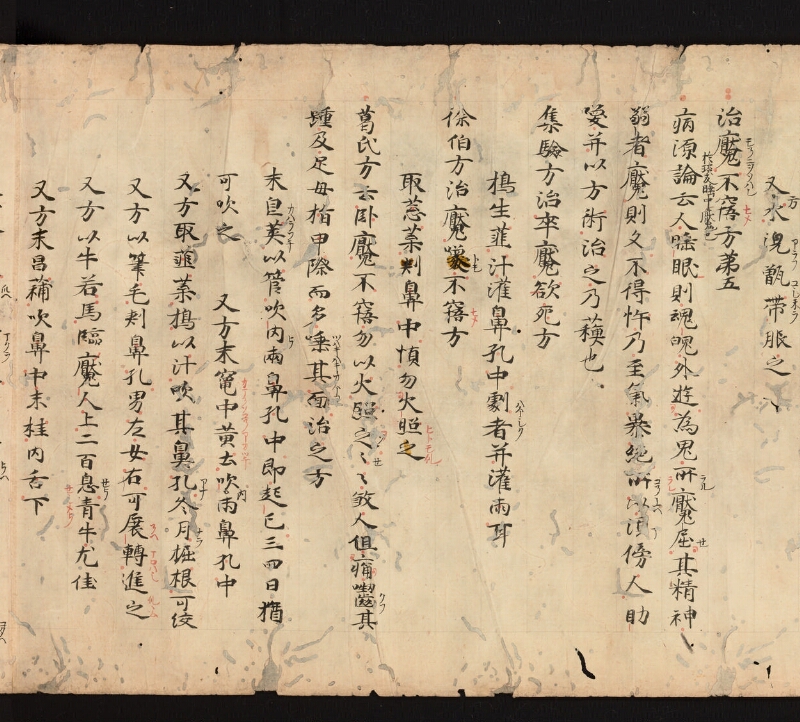 又方水洗甑帶服之
治魘不寤方第五
病源論云人睡眠則魂魄外遊為鬼所魘屈其精神
弱者魘則久不得忤乃至氣暴絕所以須傍人助
喚并以方術治之乃蘓也
集驗方治卒魘欲死方
搗生韮汁灌鼻孔中劇者并灌兩耳
徐伯方治魘不寤方
取葱葉刺鼻中慎勿火照之
葛氏方云卧魘不寤勿以火照之〻〻煞人但痛嚙其
踵及足母指甲際而多唾其面治之方
末皂莢以管吹內兩鼻孔中即起已三四日猶
可吹之 又方末竃中黄土吹內兩鼻孔中
又方取韮葉搗以汁吹其鼻孔冬月掘根可絞
又方以筆毛刾鼻孔男左女右可展轉進之
又方以牛若馬臨魘人上二百息青牛尤佳
又方末昌蒱吹鼻中末桂內舌下